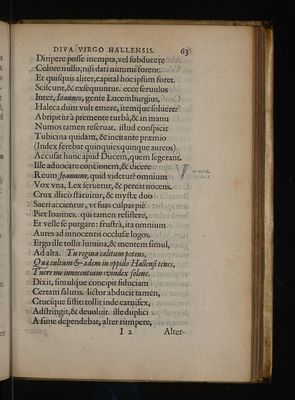 DIVA VIRGO HALLENSIS. 63
Diripere posse inempta, vel subducere
Colore nullo, nisi dati nummi forent.
Et quisquis aliter, capital hoc ipsum foret.
Sciscunt, & exsequuntur. ecce seruulos
Inter, Ioannes, gente Lucemburgius,
Haleca dum vult emere, itemque soluere:
Abripitur à premente turbâ, & in manu
Numos tamen reseruat. istud conspicit
Tubicina quidam, & incitante præmio
(Index ferebat quinquies quinque aureos)
Accusat hunc apud Ducem, quem legerant.
Ille aduocare concionem, & dicere
Reum Ioannem, quid videtur? omnium
Vox vna, Lex seruetur, & pereat nocens.
Crux illicò statuitur, & mystæ duo
Sacri accientur, vt suas culpas piè
Piet Ioannes. qui tamen resistere,
Et velle se purgare: frustrà, ita omnium
Aures ad innocentis occlusæ logos.
Ergo ille tollit lumina, & mentem simul,
Ad alta. Tu regina cælitum potens,
Quæ cultum & ædem in oppido Hallensi tenes,
Tuere me innocentium vindex solens.
Dixit, simulque concipit fiduciam
Certam salutis. lictor abducit tamen,
Crucique sistit: tollit inde carnifex,
Adstringit, & deuoluit. ille duplici
A fune dependebat, alter rumpere,
I 2 Alter-